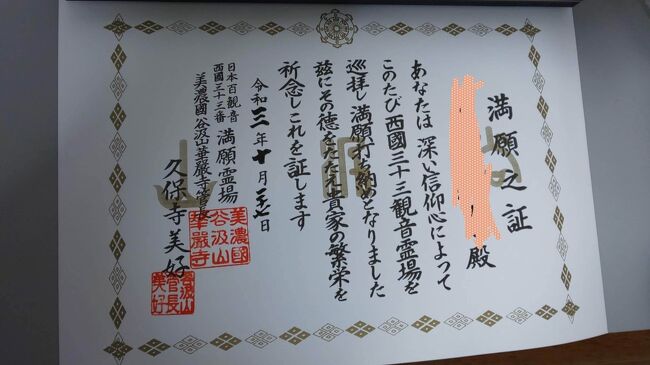 満願之証
殿
あなたは 深い信仰心によって
このたび 西國三十三観音霊場を
巡拝し 満願打ち納めとなりました
茲にその徳をたたえ 貴家の繁栄を
祈念しこれを証します
令和三年十月
日本百観音
西國三十三番 満願霊場
美濃國 谷汲山華厳寺管長
久保寺美好
美濃國
谷汲山
華嚴寺
谷汲山
管長
美好